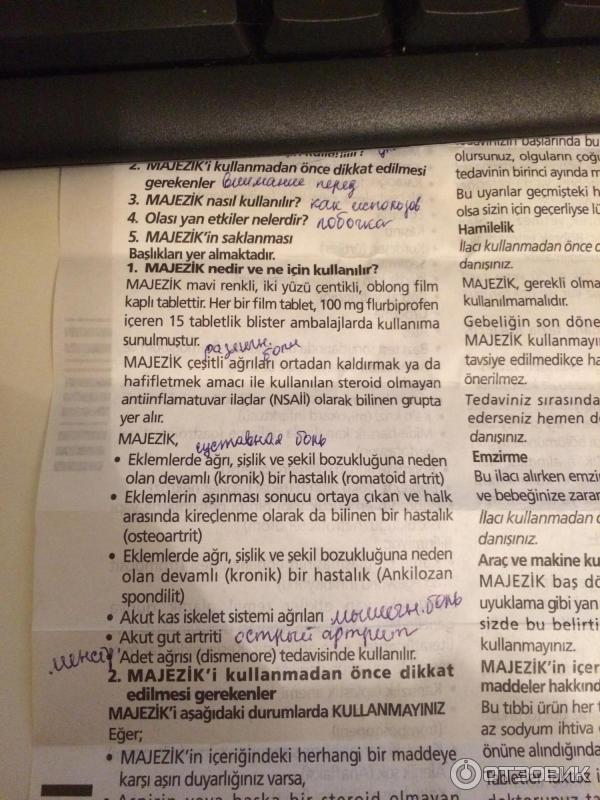 2. MAJEZİK'i kullanmadan önce dikkat edilmesi
gerekenler внимание перед
3. MAJEZİK nasıl kullanılır? как использов
4. Olası yan etkiler nelerdir? побочка
5. MAJEZİK'in saklanması
Başlıkları yer almaktadır.
1. MAJEZİK nedir ve ne için kullanılır?
MAJEZİK mavi renkli, iki yüzü çentikli, oblong film
kaplı tablettir. Her bir film tablet, 100 mg flurbiprofen
içeren 15 tabletlik blister ambalajlarda kullanıma
sunulmuştur.
боли
MAJEZİK çeşitli ağrıları ortadan kaldırmak ya da
hafifletmek amacı ile kullanılan steroid olmayan
antiinflamatuvar ilaçlar (NSAİİ) olarak bilinen grupta
yer alır.
MAJEZİK, суставная боль
• Eklemlerde ağrı, şişlik ve şekil bozukluğuna neden
olan devamlı (kronik) bir hastalık (romatoid artrit)
• Eklemlerin aşınması sonucu ortaya çıkan ve halk
arasında kireçlenme olarak da bilinen bir hastalık
(osteoartrit)
• Eklemlerde ağrı, şişlik ve şekil bozukluğuna neden
olan devamlı (kronik) bir hastalık (Ankilozan
spondilit)
• Akut kas iskelet sistemi ağrıları мышечн. боль
• Akut gut artriti острый артрит
менстр. • Adet ağrısı (dismenore) tedavisinde kullanılır.
2. MAJEZİK'i kullanmadan önce dikkat
edilmesi gerekenler
MAJEZİK'i aşağıdaki durumlarda KULLANMAYINIZ
Eğer;
• MAJEZİK'in içeriğindeki herhangi bir maddeye
karşı aşırı duyarlığınız varsa,
• Aspirin veya başka bir steroid olmayan
tedavinizin başlarında bu
olursunuz, olguların çoğu
tedavinin birinci ayında m
Bu uyarılar geçmişteki h
olsa sizin için geçerliyse lü
Hamilelik
İlacı kullanmadan önce d
danışınız.
MAJEZİK, gerekli olma
kullanılmamalıdır.
Gebeliğin son döne
MAJEZİK kullanmayın
tavsiye edilmedikçe ha
önerilmez.
Tedaviniz sırasında
ederseniz hemen do
danışınız.
Emzirme
Bu ilacı alırken emzi
ve bebeğinize zarar
İlacı kullanmadan ö
danışınız.
Araç ve makine ku
MAJEZİK baş dö
uyuklama gibi yan
sizde bu belirti
kullanmayınız.
MAJEZİK'in içer
maddeler hakkınd
Bu tıbbi ürün her t
az sodyum ihtiva e
önüne alındığında
Tabletler laktoz i
ОТЗОВИК